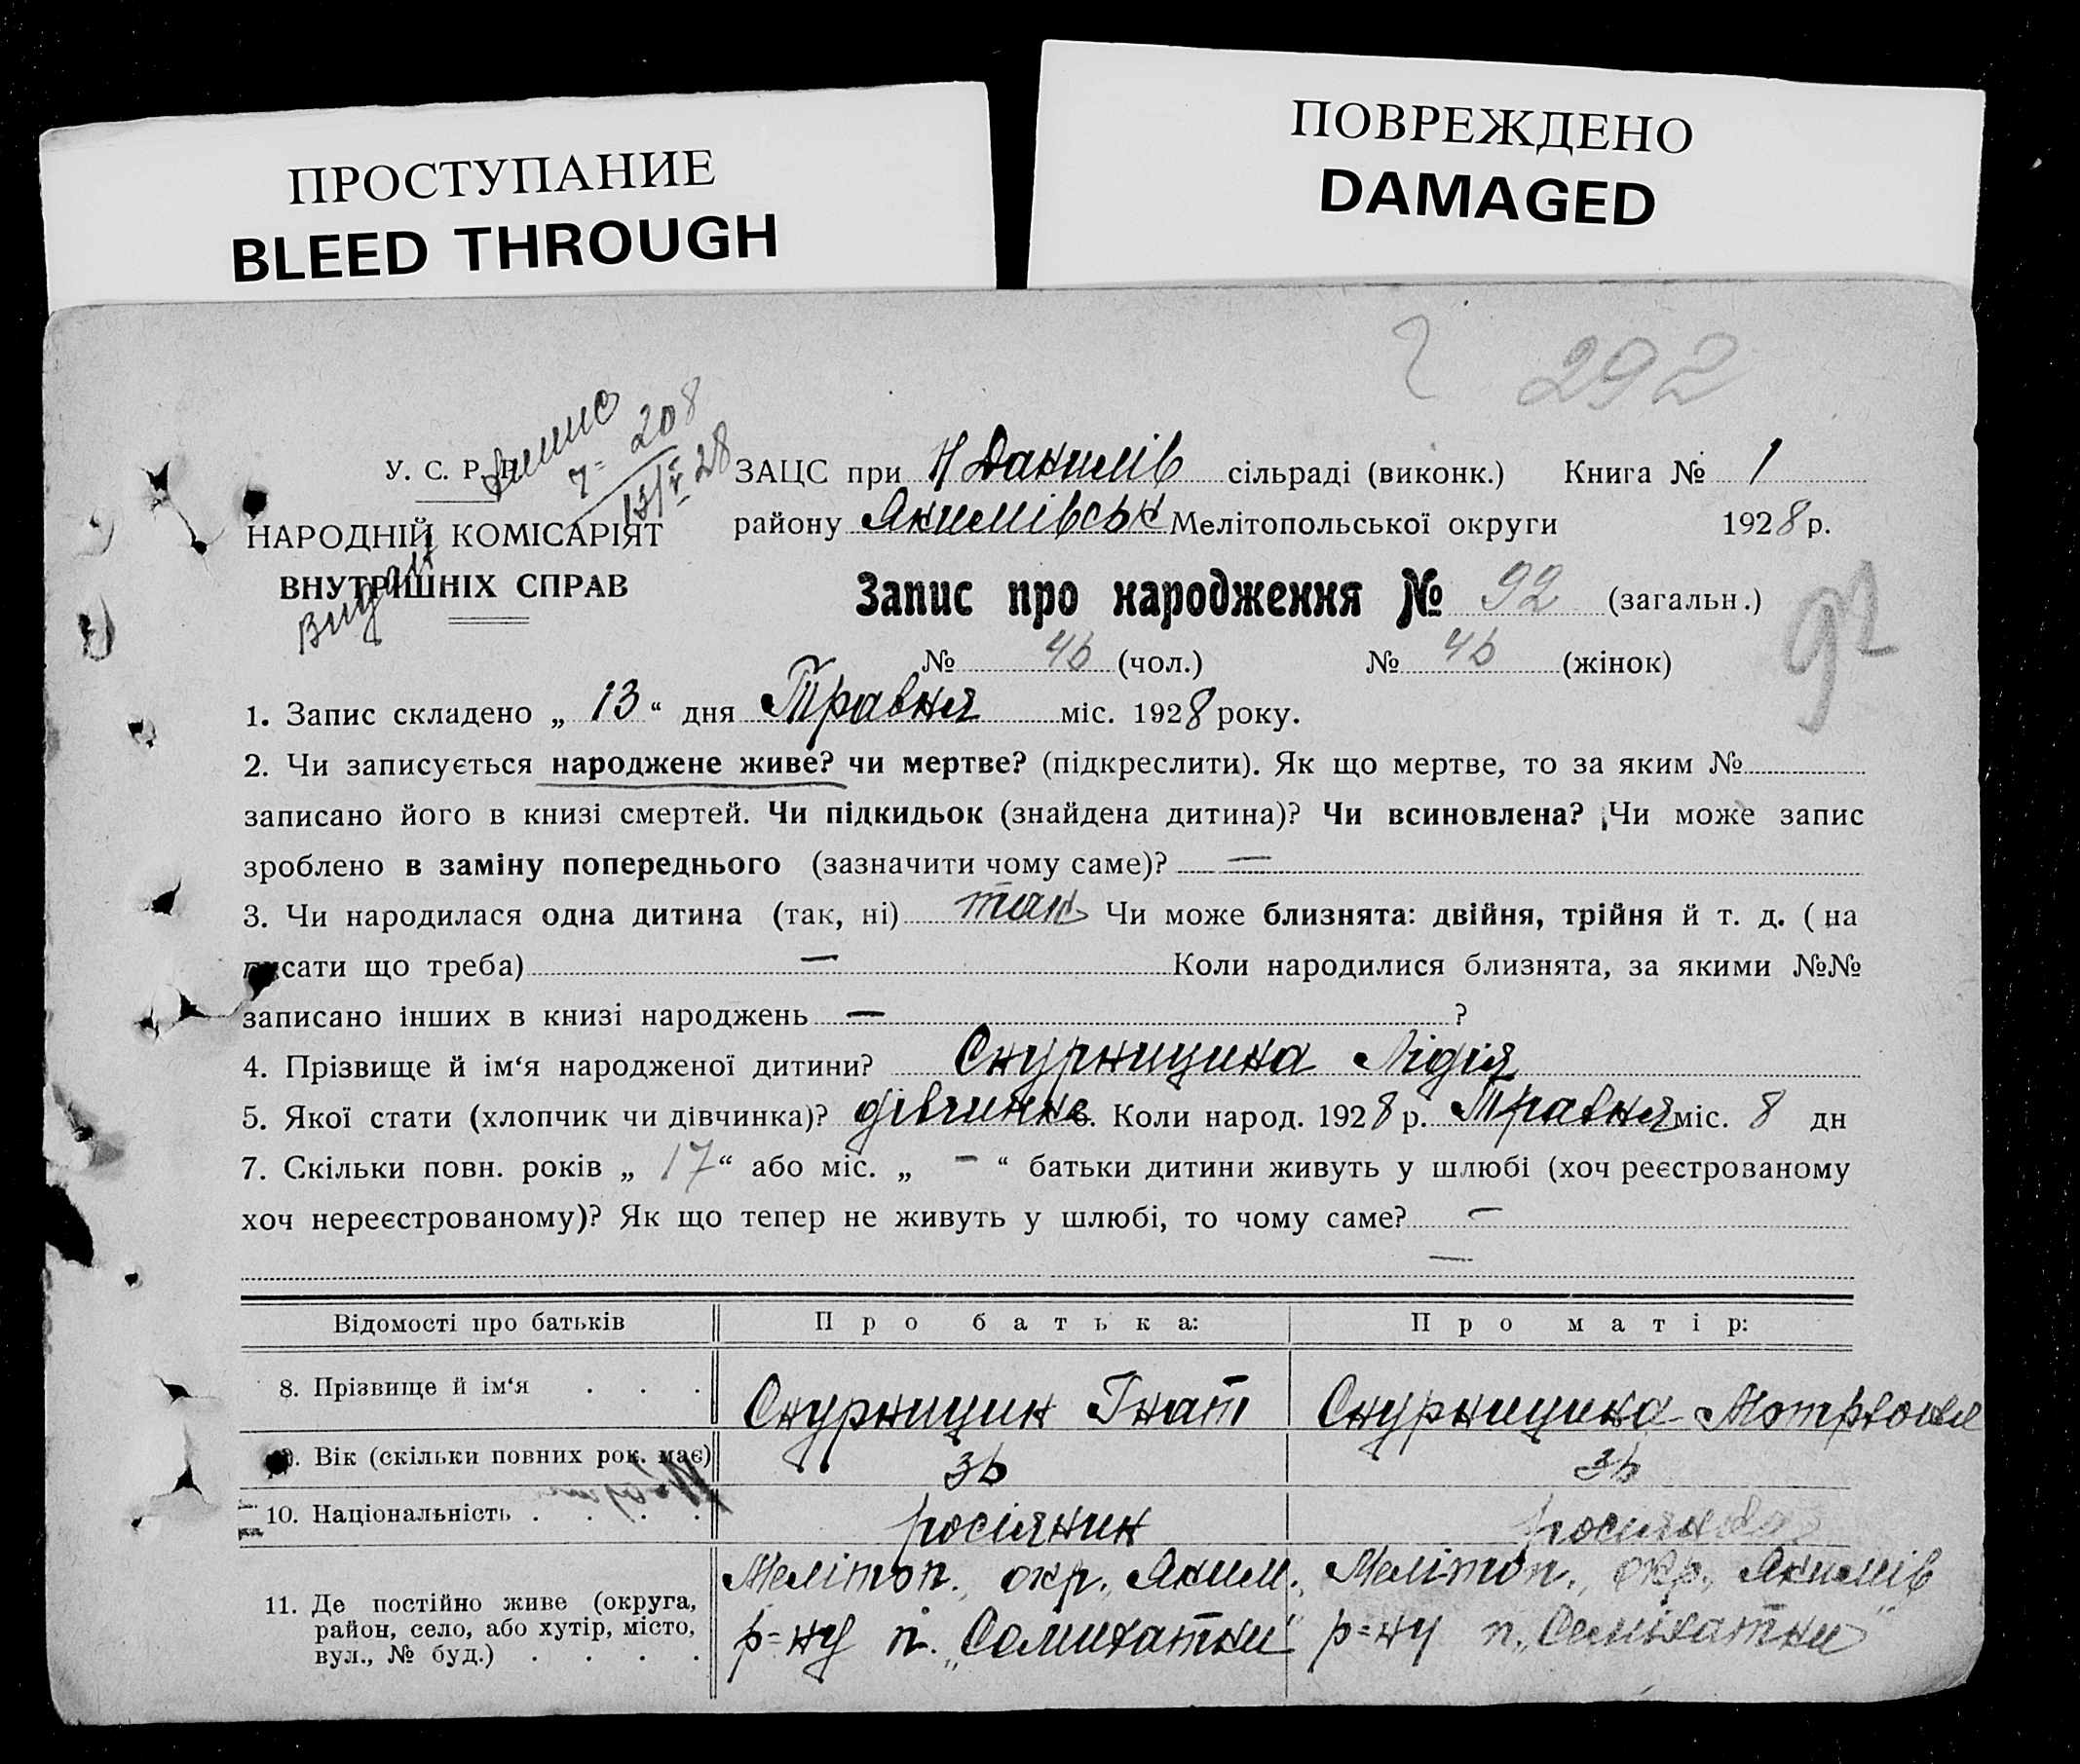 ПРОСТУПАНИЕ
BLEED THROUGH
ПОВРЕЖДЕНО
DAMAGED
292
У. С. Р. Р.
7= 208
13/V 28
НАРОДНІЙ КОМІСАРІЯТ
ВНУТРІШНІХ СПРАВ
ЗАЦС при Н Данилів сільраді (виконк.) Книга № 1
району Якимівськ Мелітопольської округи 1928 р.
Запис про народження № 92 (загальн.)
92
№ 46 (чол.) № 46 (жінок)
1. Запис складено „ 13 “ дня Травня міс. 1928 року.
2. Чи записується народжене живе? чи мертве? (підкреслити). Як що мертве, то за яким №
записано його в книзі смертей. Чи підкидьок (знайдена дитина)? Чи всиновлена? Чи може запис
зроблено в заміну попереднього (зазначити чому саме)? —
3. Чи народилася одна дитина (так, ні) так Чи може близнята: двійня, трійня й т. д. (на
писати що треба) — Коли народилися близнята, за якими №№
записано інших в книзі народжень — ?
4. Прізвище й ім‘я народженої дитини? Скурнищина Лідія
5. Якої стати (хлопчик чи дівчинка)? дівчинка 6. Коли народ. 1928 р. Травня міс. 8 дн
7. Скільки повн. років „ 17 “ або міс. „ — “ батьки дитини живуть у шлюбі (хоч реєстрованому
хоч нереєстрованому)? Як що тепер не живуть у шлюбі, то чому саме? —
—
Відомості про батьків Про батька: Про матір:
8. Прізвище й ім‘я . . . Ску­рнищин Гнат Скурнищина
9. Вік (скільки повних рок. має) 36 36
10. Національність . . . . росіянин
11. Де постійно живе (округа,
район, село, або хутір, місто,
вул., № буд.) . . . .
Мелітоп., окр., Яким.,
р=ну п. „Самихатки“
Мелітоп., окр., Якимів
р=ну п. „Семихатки“